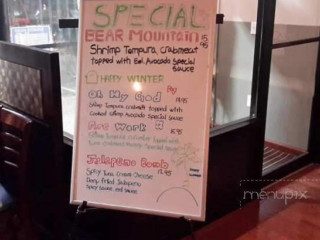 SPECIAL
BEAR MOUNTAIN 15.95
Shrimp Tempura, Crabmeat
topped with Eel, Avocado Special
Sauce
HAPPY WINTER
Oh My God
14.95
Shrimp Tempura Crabmeat topped with
Cooked Shrimp Avocado Special Sauce
Fire Work
Jalapeno Bomb
Spicy Tuna, Cream Cheese
Deep fried Jalapeno
Spicy sauce, eel sauce
menupix